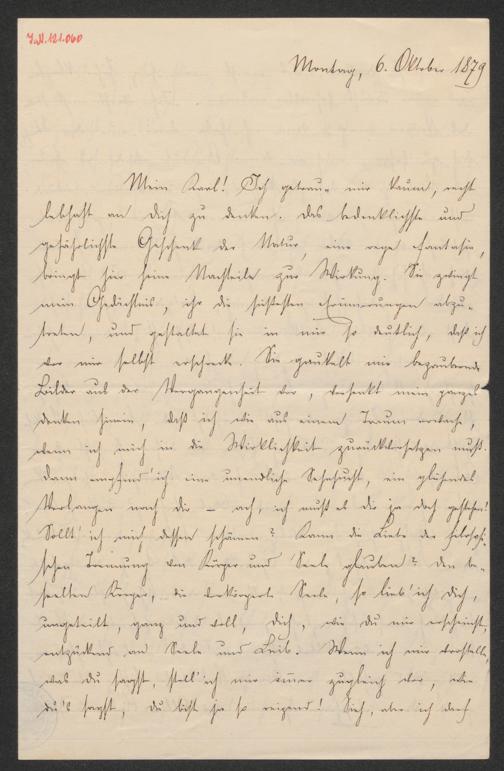 I.N. 121.060
Montag, 6. Oktober 1879
Mein Karl! Ich getraue mir kaum, recht
lebhaft an dich zu denken. Das bedenklichste und
gefährlichste Geschenk der Natur, eine rege Fantasie,
bringt hier seine Nachteile zur Wirkung. Sie zwingt
mein Gedächtnis, ihr die süßesten Erinnerungen abzu-
treten, und gestaltet sie in mir so deutlich, daß ich
vor mir selbst erschrecke. Sie gaukelt mir bezaubernde
Bilder aus der Vergangenheit vor, versenkt mein ganzes
Denken hinein, daß ich wie aus einem Traum erwache,
wenn ich mich in die Wirklichkeit zurückversetzen muß.
Dann empfind' ich eine unendliche Sehnsucht, ein glühendes
Verlangen nach dir – ach, ich muß es dir ja doch gestehen!
Sollt' ich mich dessen schämen? Kann die Liebe der filosofi-
schen Trennung von Körper und Seele glauben? Den be-
seelten Körper, die verkörperte Seele, so lieb' ich dich,
ungeteilt, ganz und voll, dich, wie du mir erscheinst,
entzückend an Seele und Leib. Wenn ich mir vorstelle,
was du sagst, stell' ich mir immer zugleich vor, wie
du's sagst, du bist ja so reizend! Sieh, aber ich darf